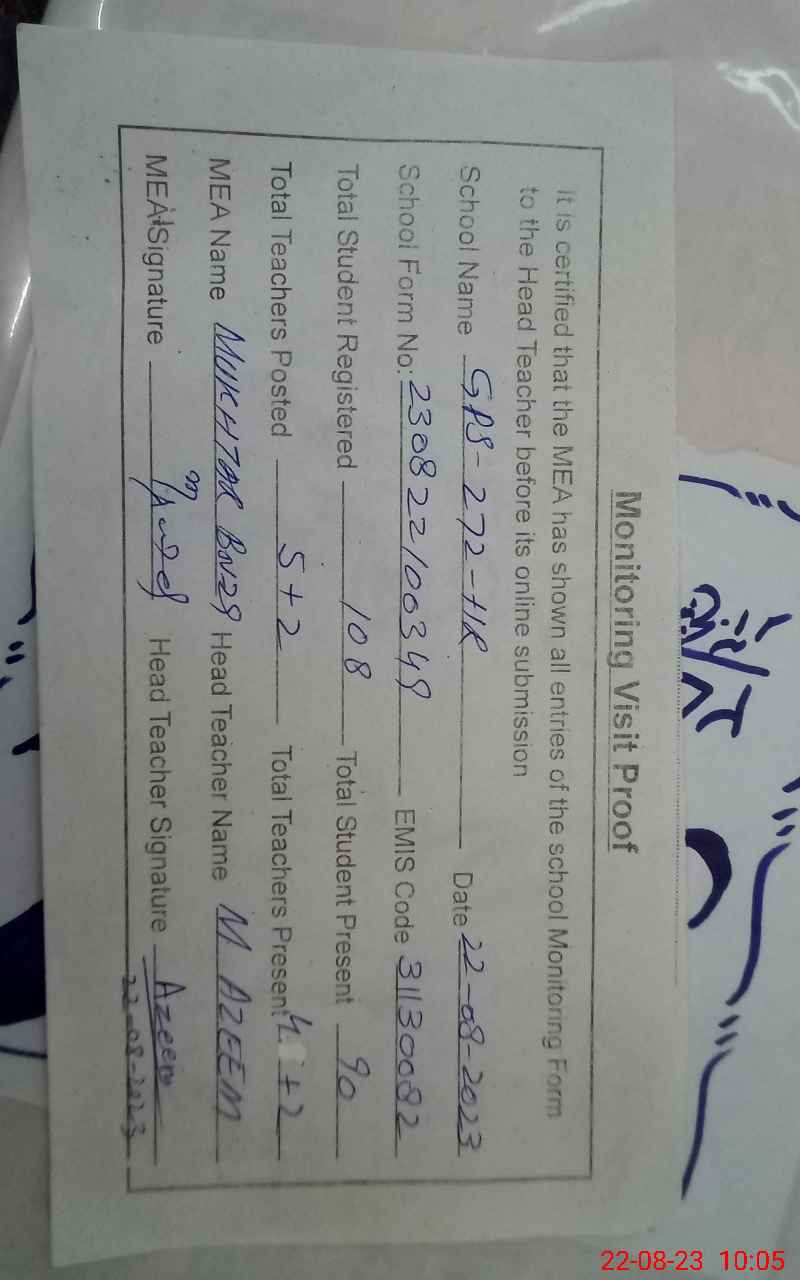 Monitoring Visit Proof
It is certified that the MEA has shown all entries of the school Monitoring Form
to the Head Teacher before its online submission
School Name GPS-272-HR Date 22-08-2023
School Form No: 230822100349 EMIS Code 31130082
Total Student Registered 108 Total Student Present 90
Total Teachers Posted 5+2 Total Teachers Present 4 +2
MEA Name MUKHTAR Head Teacher Name M AZEEM
MEA Signature Head Teacher Signature Azeem
22-08-2023
22-08-23 10:05